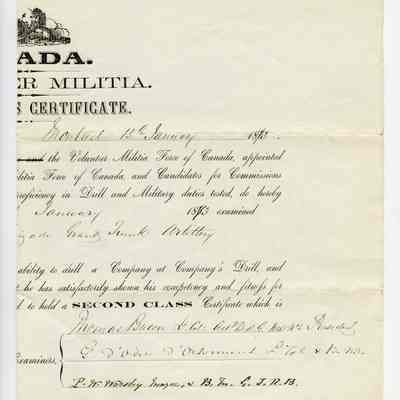 ADA.
ER MILITIA.
S CERTIFICATE.
Montreal 15th January 1873.
and the Volunteer Militia Force of Canada, appointed
ilitia Force of Canada, and Candidates for Commissions
roficiency in Drill and Military duties tested, do hereby
January 1873 examined
igade Grand Trunk Artillery
ability to drill a Company at Company's Drill, and
t he has satisfactorily shown his competency and fitness for
d to hold a SECOND CLASS Certificate which is
Thomas Bacon Lt Col. President,
xaminers,
d'Orsonnens Lt Col & B. M.
P. W. Worsley Major, & B. M. G. T. R. B.